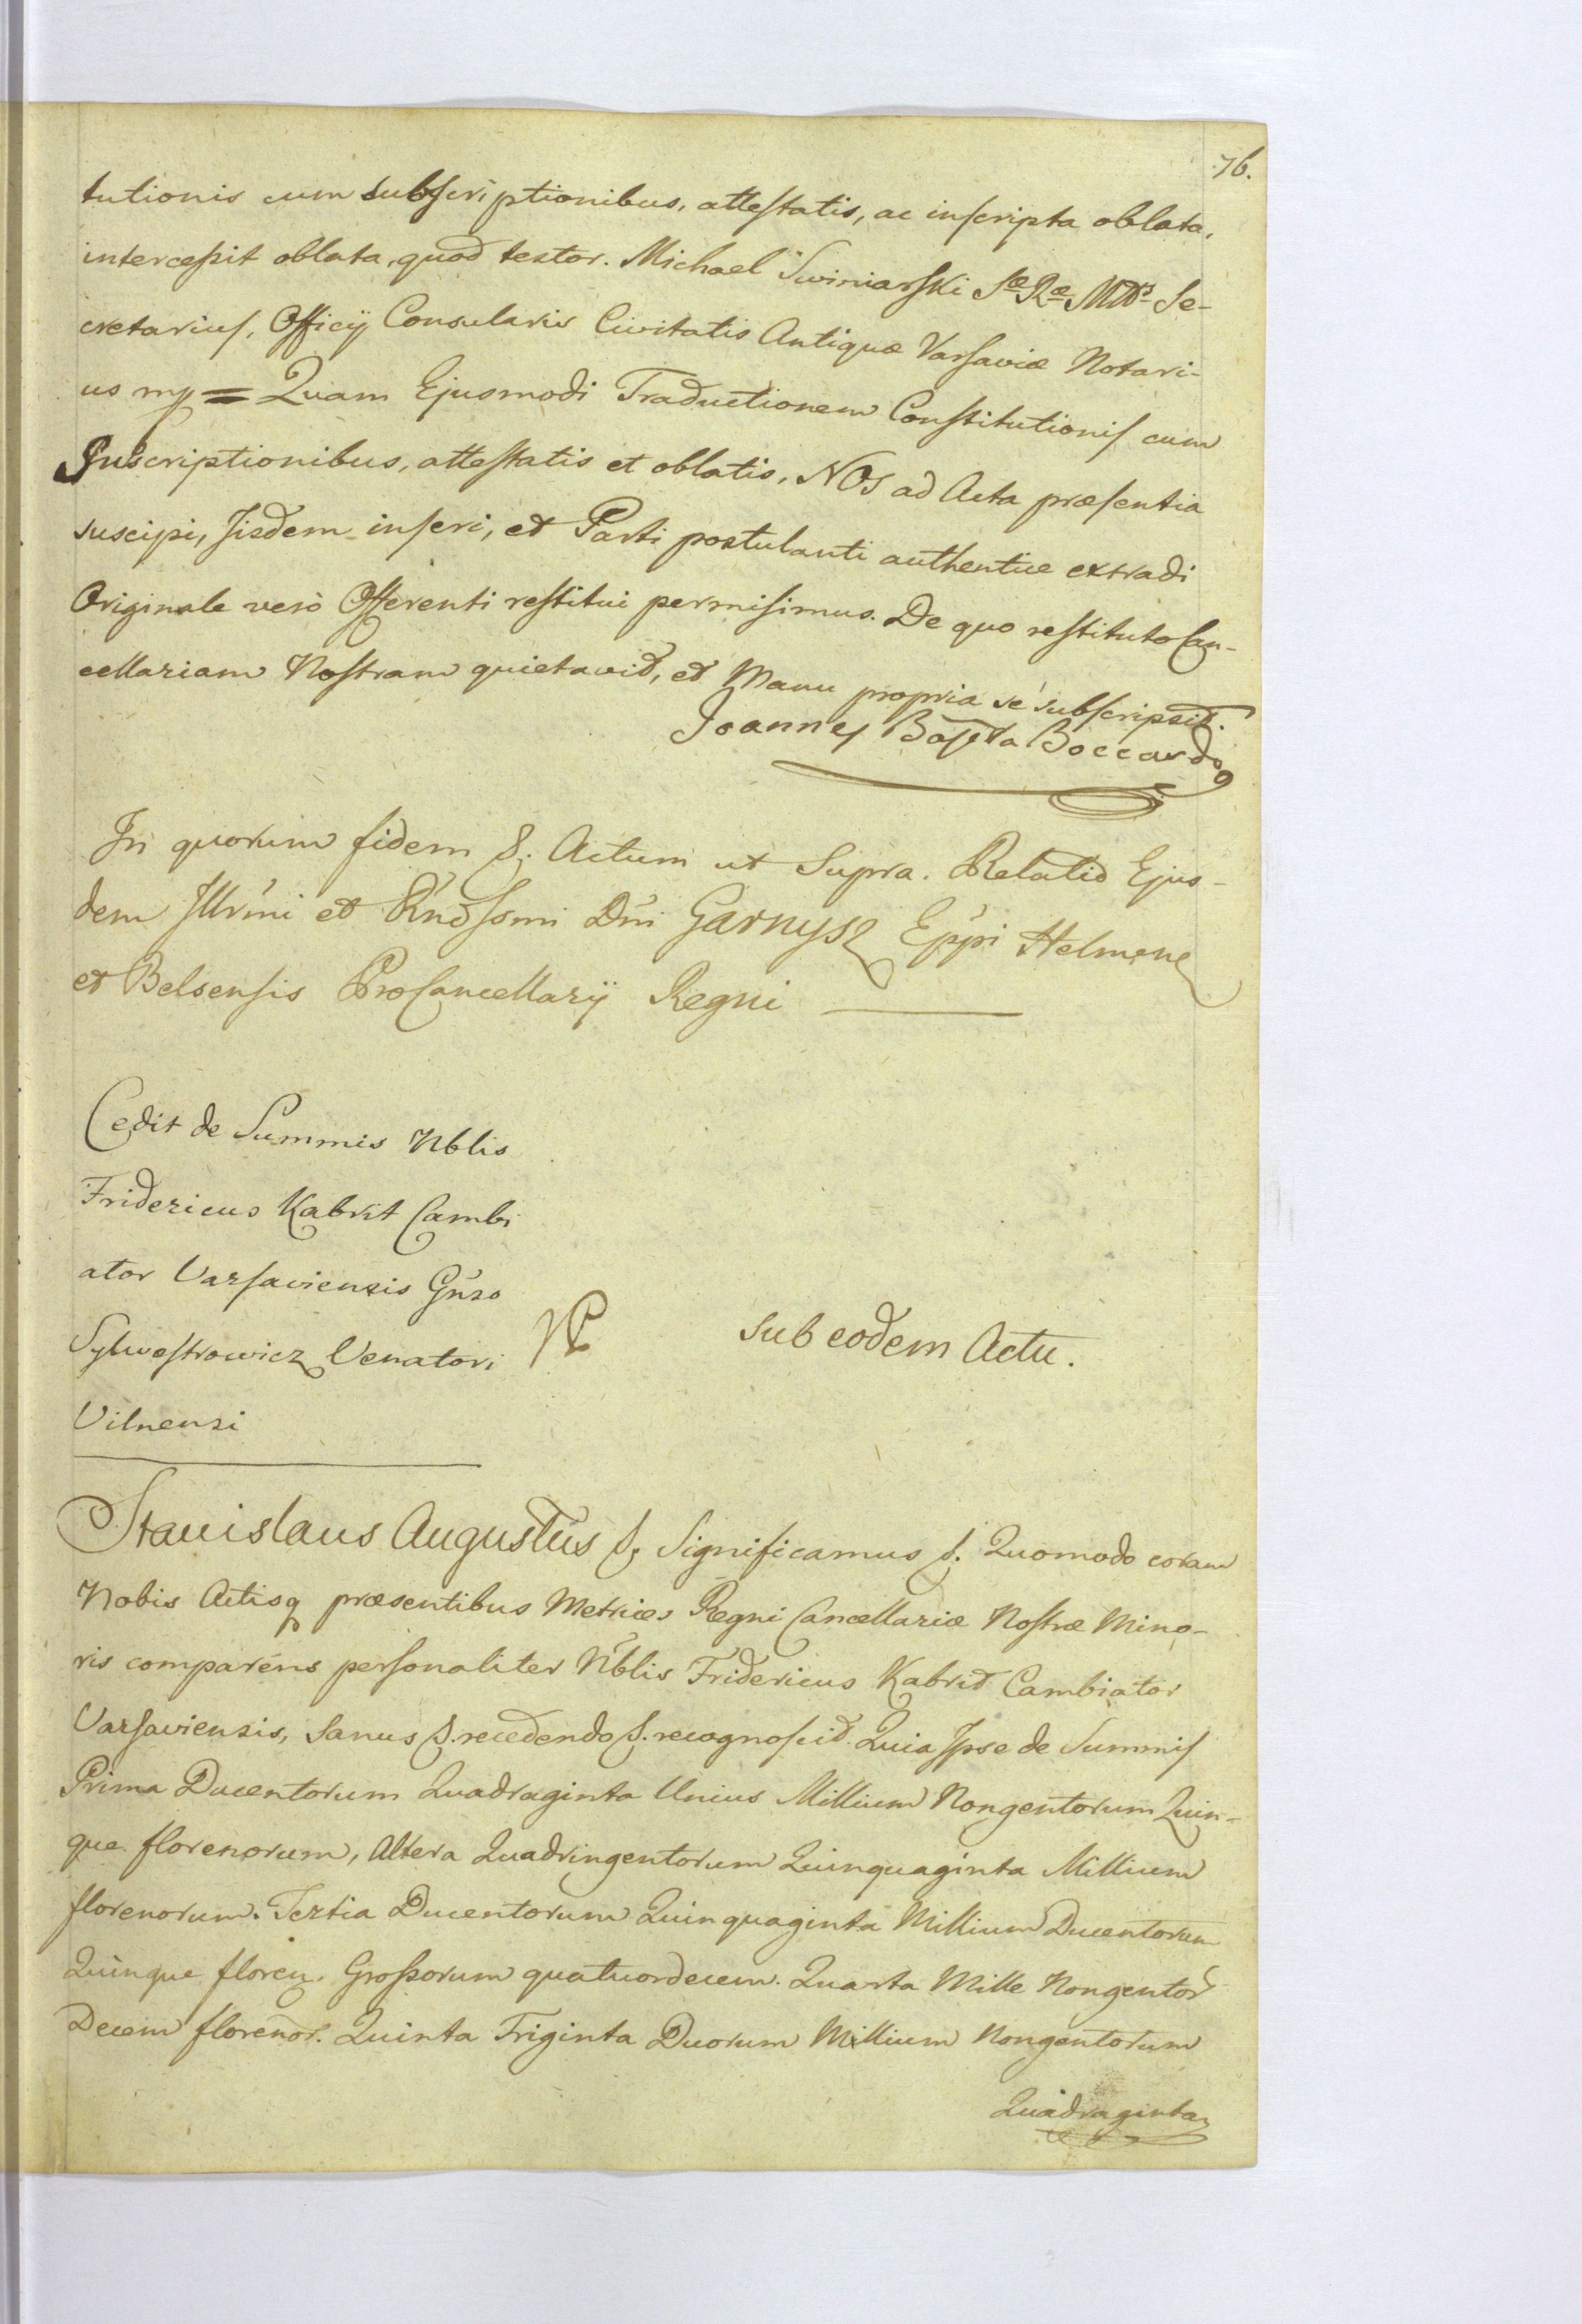 76.
tutionis cum subscriptionibus, attestatis, ac inscripta oblata,
intercessit oblata, quod testor. Michael Swiniarski Sæ Ræ Mttis Se-
cretarius, Officij Consularis Civitatis Antiquæ Varsaviæ Notari-
us mp = Quam Ejusmodi Traductionem Constitutionis cum
Suscriptionibus, attestatis et oblatis, NOS ad Acta præsentia
suscipi, Jisdem inseri, et Parti postulanti authentice extradi
Originale verò Offerenti restitui permisimus. De quo restituto Can-
cellariam Nostram quietavit, et Manu propria se subscripsit.
Joannes Bapta Boccardo
In quorum fidem &. Actum ut Supra. Relatio Ejus-
dem Jllrmi et Rndssmi Dni Garnysz Eppi Helmens
et Belsensis ProCancellarij Regni
Cedit de Summis Nblis
Fridericus Kabryt Cambi
ator Varsaviensis Gnso
Sylwestrowicz Venatori
Vilnensi
sub eodem Actu.
Stanislaus Augustus &. Significamus &. Quomodo coram
Nobis Actisq præsentibus Metrices Regni Cancellariæ Nostræ Mino-
ris comparens personaliter Nblis Fridericus Kabrit Cambiator
Varsaviensis, Sanus &. recedendo &. recognoscit. Quia Jpse de Summis
Prima Ducentorum Quadraginta Unius Millium Nongentorum Quin-
que florenorum, Altera Quadringentorum Quinquaginta Millium
florenorum. Tertia Ducentorum Quinquaginta Millium Ducentorum
Quinque floren. Grossorum quatuordecem. Quarta Mille Nongentor
Decem florenor. Quinta Triginta Duorum Millium Nongentorum
Quadraginta